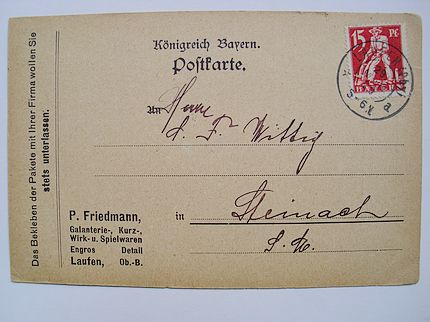 Das Bekleben der Pakete mit Ihrer Firma wollen Sie
stets unterlassen.
Königreich Bayern.
Postkarte.
15 Pf
BAYERN
An Herrn
L. Fr Wittig
in Steinach
S. M.
P. Friedmann,
Galanterie-, Kurz-,
Wirk- u. Spielwaren
Engros Detail
Laufen, Ob.-B.